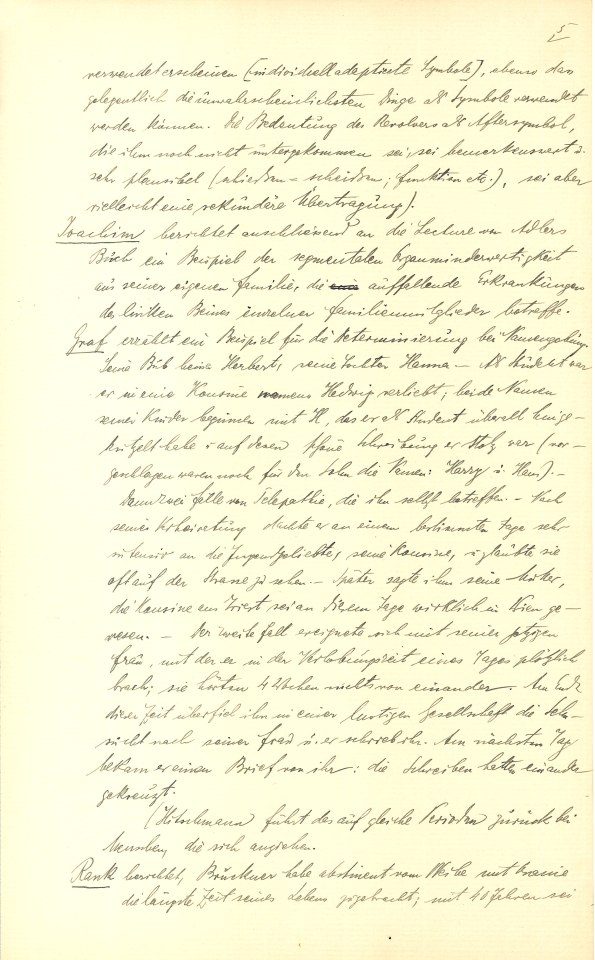 5
verwendet erscheinen [individuell adaptierte Symbole], ebenso dass
gelegentlich die unwahrscheinlichsten Dinge als Symbole verwendet
werden können. Die Bedeutung des Revolvers als Aftersymbol,
die ihm noch nicht untergekommen sei, sei bemerkenswert u.
sehr plausibel (schießen – scheißen; funktion etc.), sei aber
vielleicht eine sekundäre Übertragung).
Joachim berichtet anschließend an die Lecture von Adlers
Buch ein Beispiel der segmentalen Organminderwertigkeit
aus seiner eigenen familie, die auffallende Erkrankungen
des linken Beines einzelner familienmitglieder betreffe.
Graf erzählt ein Beispiel für die Determinierung bei Namengebung.
Sein Bub heisse Herbert, seine Tochter Hanna – Als Student war
er in eine Kousine namens Hedwig verliebt; beide Namen
seiner Kinder beginnen mit H, das er als Student überall hinge-
kritzelt habe u. auf dessen schöne Schreibung er stolz war (vor-
geschlagen waren noch für den Sohn die Namen: Harry u. Hans). –
Dann zwei fälle von Telepathie, die ihn selbst betreffen. – Nach
seiner Verheiratung dachte er an einem bestimmten Tage sehr
intensiv an die Jugendgeliebte, seine Kousine, u. glaubte sie
oft auf der Strasse zu sehen. – Später sagte ihm seine Mutter,
die Kousine aus Triest sei an diesem Tage wirklich in Wien ge-
wesen. – Der zweite fall ereignete sich mit seiner jetzigen
frau, mit der er in der Verlobungszeit eines Tages plötzlich
brach; sie hörten 4 Wochen nichts von einander. Am Ende
dieser Zeit überfiel ihn in einer lustigen Gesellschaft die Sehn-
sucht nach seiner frau u. er schrieb ihr. Am nächsten Tag
bekam er einen Brief von ihr: die Schreiben hatten einander
gekreuzt.
(Hitschmann führt das auf gleiche Perioden zurück bei
Menschen, die sich anziehen.
Rank berichtet, Bruckner habe abstinent vom Weibe
die längste Zeit seines Lebens zugebracht; mit 40 Jahren sei